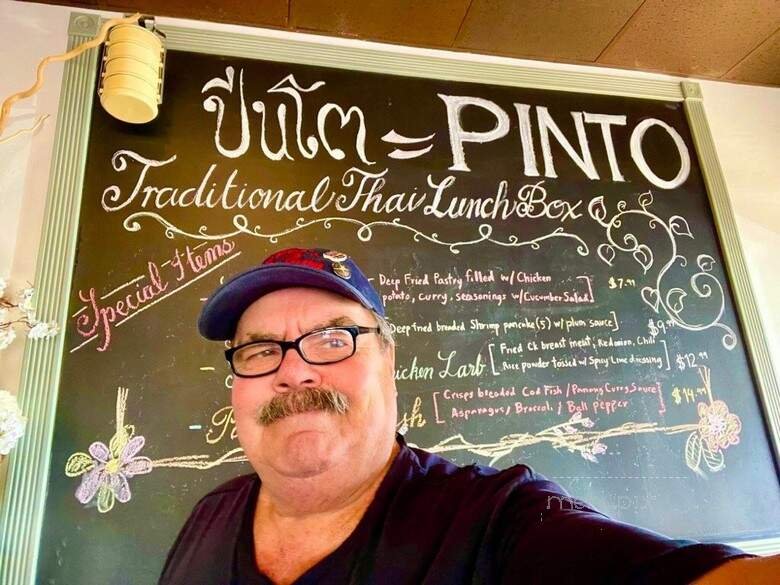 ปิ่นโต = PINTO
Traditional Thai Lunch Box
Special Items
Deep Fried Pastry filled w/ Chicken
potato, curry, seasonings w/Cucumber Salad]
$7.99
Deep fried breaded Shrimp pancake(5) w/ plum sauce]
$9.
icken Larb [Fried Ck breast meat, Red onion, Chili
Rice powder tossed w/ Spicy Lime dressing]
$12.99
sh [Crisps breaded Cod Fish / Panang Curry Sauce
Asparagus / Broccoli / Bell pepper]
$14.99